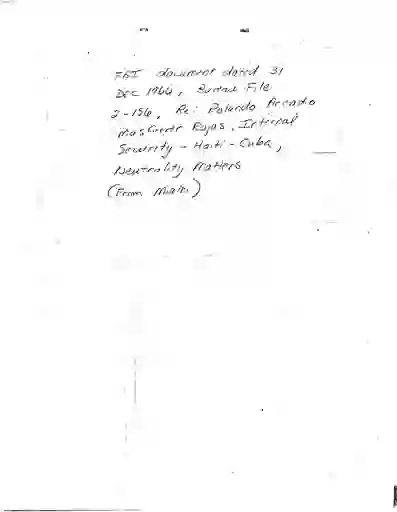 FBI document dated 31
Dec 1966, Bureau File
2-156, Re: Rolando Arcadio
Masferrer Rojas, Internal
Security - Haiti - Cuba,
Neutrality Matters
(From Miami)